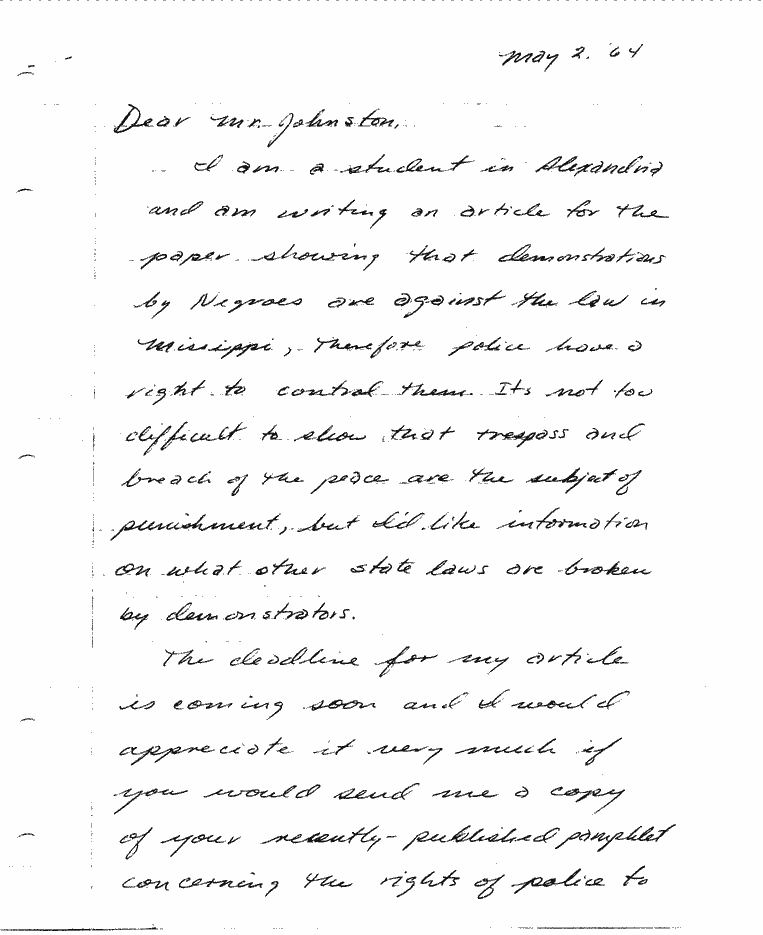 May 2. '64
Dear Mr. Johnston,
I am a student in Alexandria
and am writing an article for the
paper showing that demonstrations
by Negroes are against the law in
Missippi, Therefore police have a
right to control them. Its not too
difficult to show that trespass and
breach of the peace are the subject of
punishment, but I'd like information
on what other state laws are broken
by demonstrators.
The deadline for my article
is coming soon and I would
appreciate it very much if
you would send me a copy
of your recently-published pamphlet
concerning the rights of police to